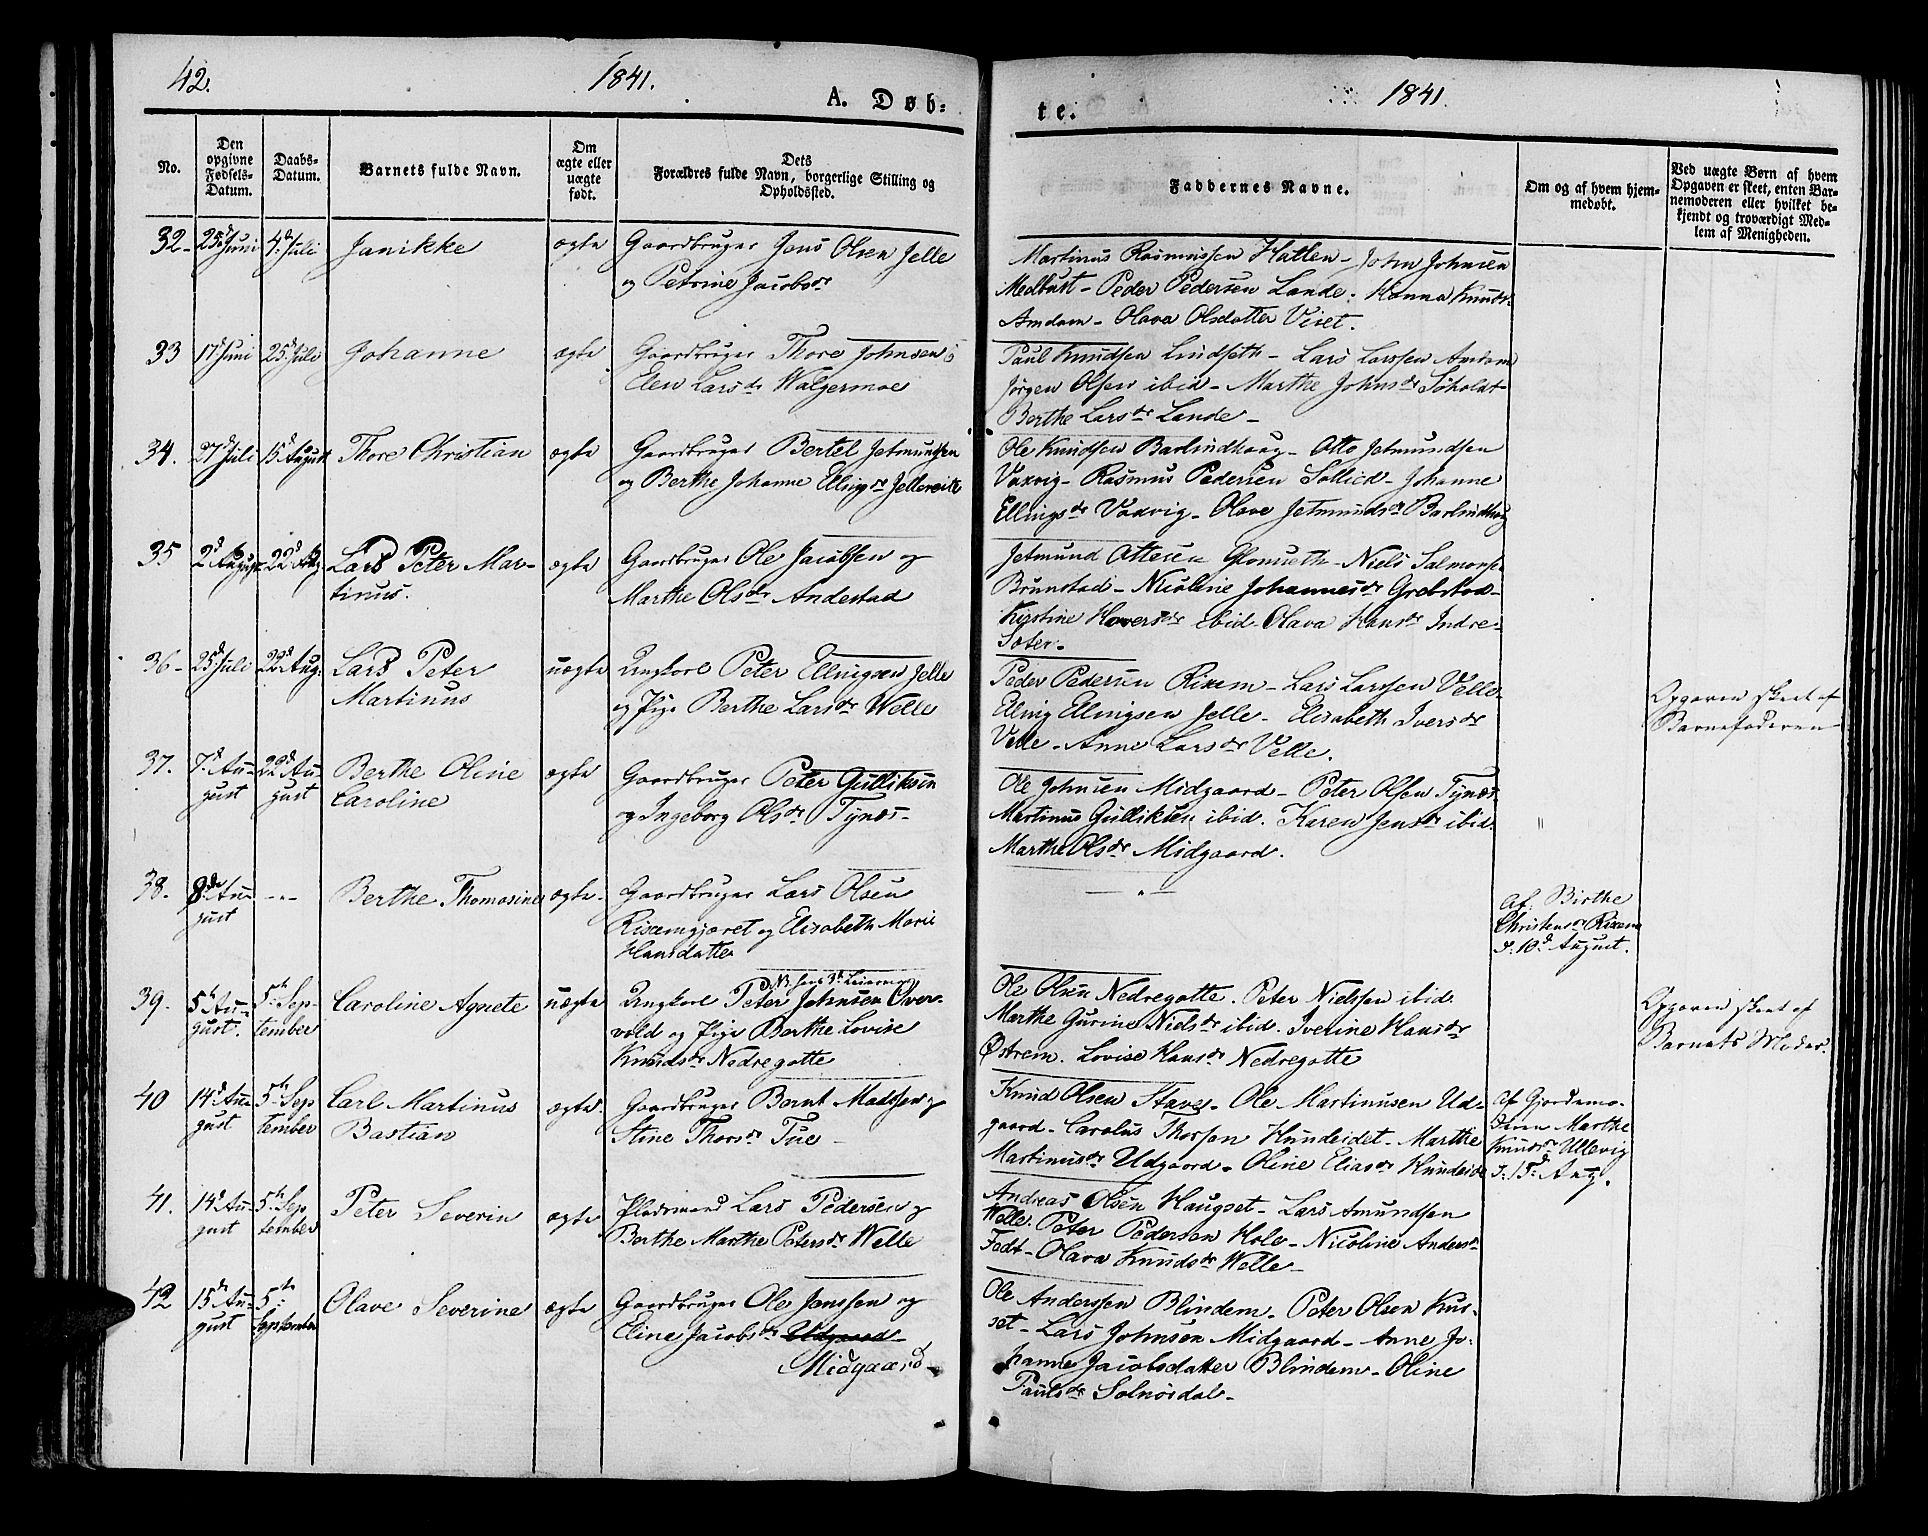 42.
1841.
A. Døb-
te.
1841.
No.
Den opgivne Fødsels-Datum.
Daabs-Datum.
Barnets fulde Navn.
Om ægte eller uægte født.
Dets Forældres fulde Navn, borgerlige Stilling og Opholdssted.
Faddernes Navne.
Om og af hvem hjem-medøbt.
Ved uægte Børn af hvem Opgaven er skeet, enten Bar-nemoderen eller hvilket be-kjendt og troværdigt Med-lem af Menigheden.
32- 25d Juni 4d Juli Janikke ægte Gaardbruger Jens Olsen Jelle
og Petrine Jacobsdr
Martinus Rasmussen Hatlen- John Johnsen
Medbust- Peder Pedersen Lande. Hanna Knuds-
Amdam- Olava Olsdatter Viset.
33 17d Juni 25d Juli Johanne ægte Gaardbruger Thore Johnsen
Elen Larsdr Walgermoe
Paul Knudsen Lindseth- Lars Larssen Amdam
Jørgen Olsen ibid- Marthe Johnsdr Søholdt-
Berthe Larsdr Lande-
34. 27d Juli 15d August Thore Christian ægte Gaardbruger Bertel Jetmundsen
og Berthe Johanne Ellingsdr Jellereite
Ole Knudsen Barlindhoug- Otto Jetmundsen
Vaxvig- Rasmus Pedersen Sollied- Johanne
Ellingsdr Vaxvig- Olave Jetmundsdr Barlindhoug
35 2d August 22d Aug Lars Peter Mar-
tinus.
ægte Gaardbruger Ole Jacobsen og
Marthe Olsdr Andestad
Jetmund Ottesen Glomseth- Niels Salmons-
Brunstad- Nicoline Johannesdr Grebstad-
Kistine Haversdr ibid- Olava Hansdr Indre-
Sæter-
36- 25d Juli 22d Aug: Lars Peter
Martinus
uægte Ungkarl Peter Ellingsen Jelle
og Pige Berthe Larsdr Welle
Peder Pedersen Rixem- Lars Larssen Velle-
Elling Ellingsen Jelle- Elisabeth Iversdr
Velle- Anne Larsdr Velle.
Opgaven skeet af
Barnefaderen-
37. 7d Au-
gust
22d Au-
gust
Berthe Oline
Caroline
ægte Gaardbruger Peter Gulliksen
og Ingeborg Olsdr Tynæs-
Ole Johnsen Midgaard- Peter Olsen Tynæs-
Martinus Gulliksen ibid. Karen Jensdr ibid.
Marthe Olsdr Midgaard.
"
38. 8de Au-
gust
-"- Berthe Thomasine ægte- Gaardbruger Lars Olsen
Rixemgjæret og Elisabeth Marie
Hansdatter
- " -
Af: Birthe
Christensdr Rixem
d. 10d August.
39. 5th Au-
gust.
5th Sep-
tember
Caroline Agnete uægte
Ungkarl Peter Johnsen Over-
vold og Pige Berthe Lovise
Knudsdr Nedregotte
Ole Olsen Nedregotte. Peter Nielssen ibid.
Marthe Gurine Nielsdr ibid. Iverine Hansdr
Østrem. Lovise Hansdr Nedregotte
Opgaven skeet af
Barnets Moder.
40 14d Au-
gust
5th Sep
tember
Carl Martinus
Bastian
ægte Gaardbruger Bernt Madsen og
Stine Thorsdr Tue-
Knud Olsen Stave- Ole Martinusen Ud-
gaard- Carolus Thorsen Hundeidet- Marthe
Martinusdr Udgaard- Oline Eliasdr Hundeide
Af Gjordemo-
deren Marthe
Knudsdr Ullevig
d. 15d Aug.
41. 14d Au-
gust
5th Sep
tember
Peter Severin ægte Pladsmand Lars Pedersen og
Berthe Marthe Petersdr Welle
Andreas Olsen Haugset- Lars Amundsen
Welle. Peter Pedersen Hole- Nicoline Andersdr
Tedt- Olava Knudsdr Welle-
42 15de Au-
gust
5te
September
Olave Severine ægte Gaardbruger Ole Jenssen og
Eline Jacobsdr Udgaard-
Midgaard-
Ole Anderssen Blindem- Peter Olsen Kur-
set- Lars Johnsen Midgaard- Anne Jo-
hanne Jacobsdatter Blindem- Oline
Paulsdr Solnørdal-